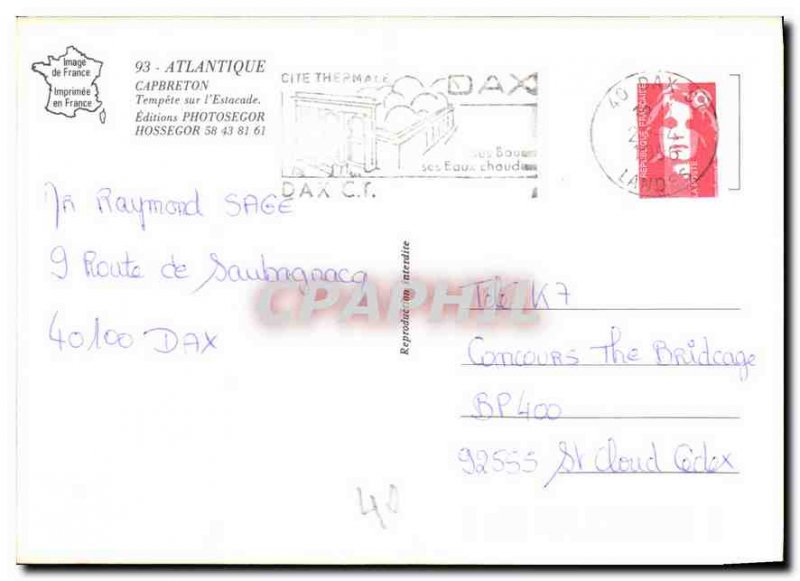 Image
de France
Imprimée
en France
93 - ATLANTIQUE
CAPBRETON
Tempête sur l'Estacade.
Éditions PHOTOSEGOR
HOSSEGOR 58 43 81 61
CITE THERMALE
DAX
ses Boues
ses Eaux chaudes
DAX C.T.
40 DAX
LANDES
REPUBLIQUE FRANÇAISE
LA POSTE
Mr Raymond SAGE
9 Route de Saubagnacq
40100 DAX
Reproduction interdite
CPAPHIL
Télé K7
Concours The Bridcage
BP 400
92555 St Cloud Cedex
40